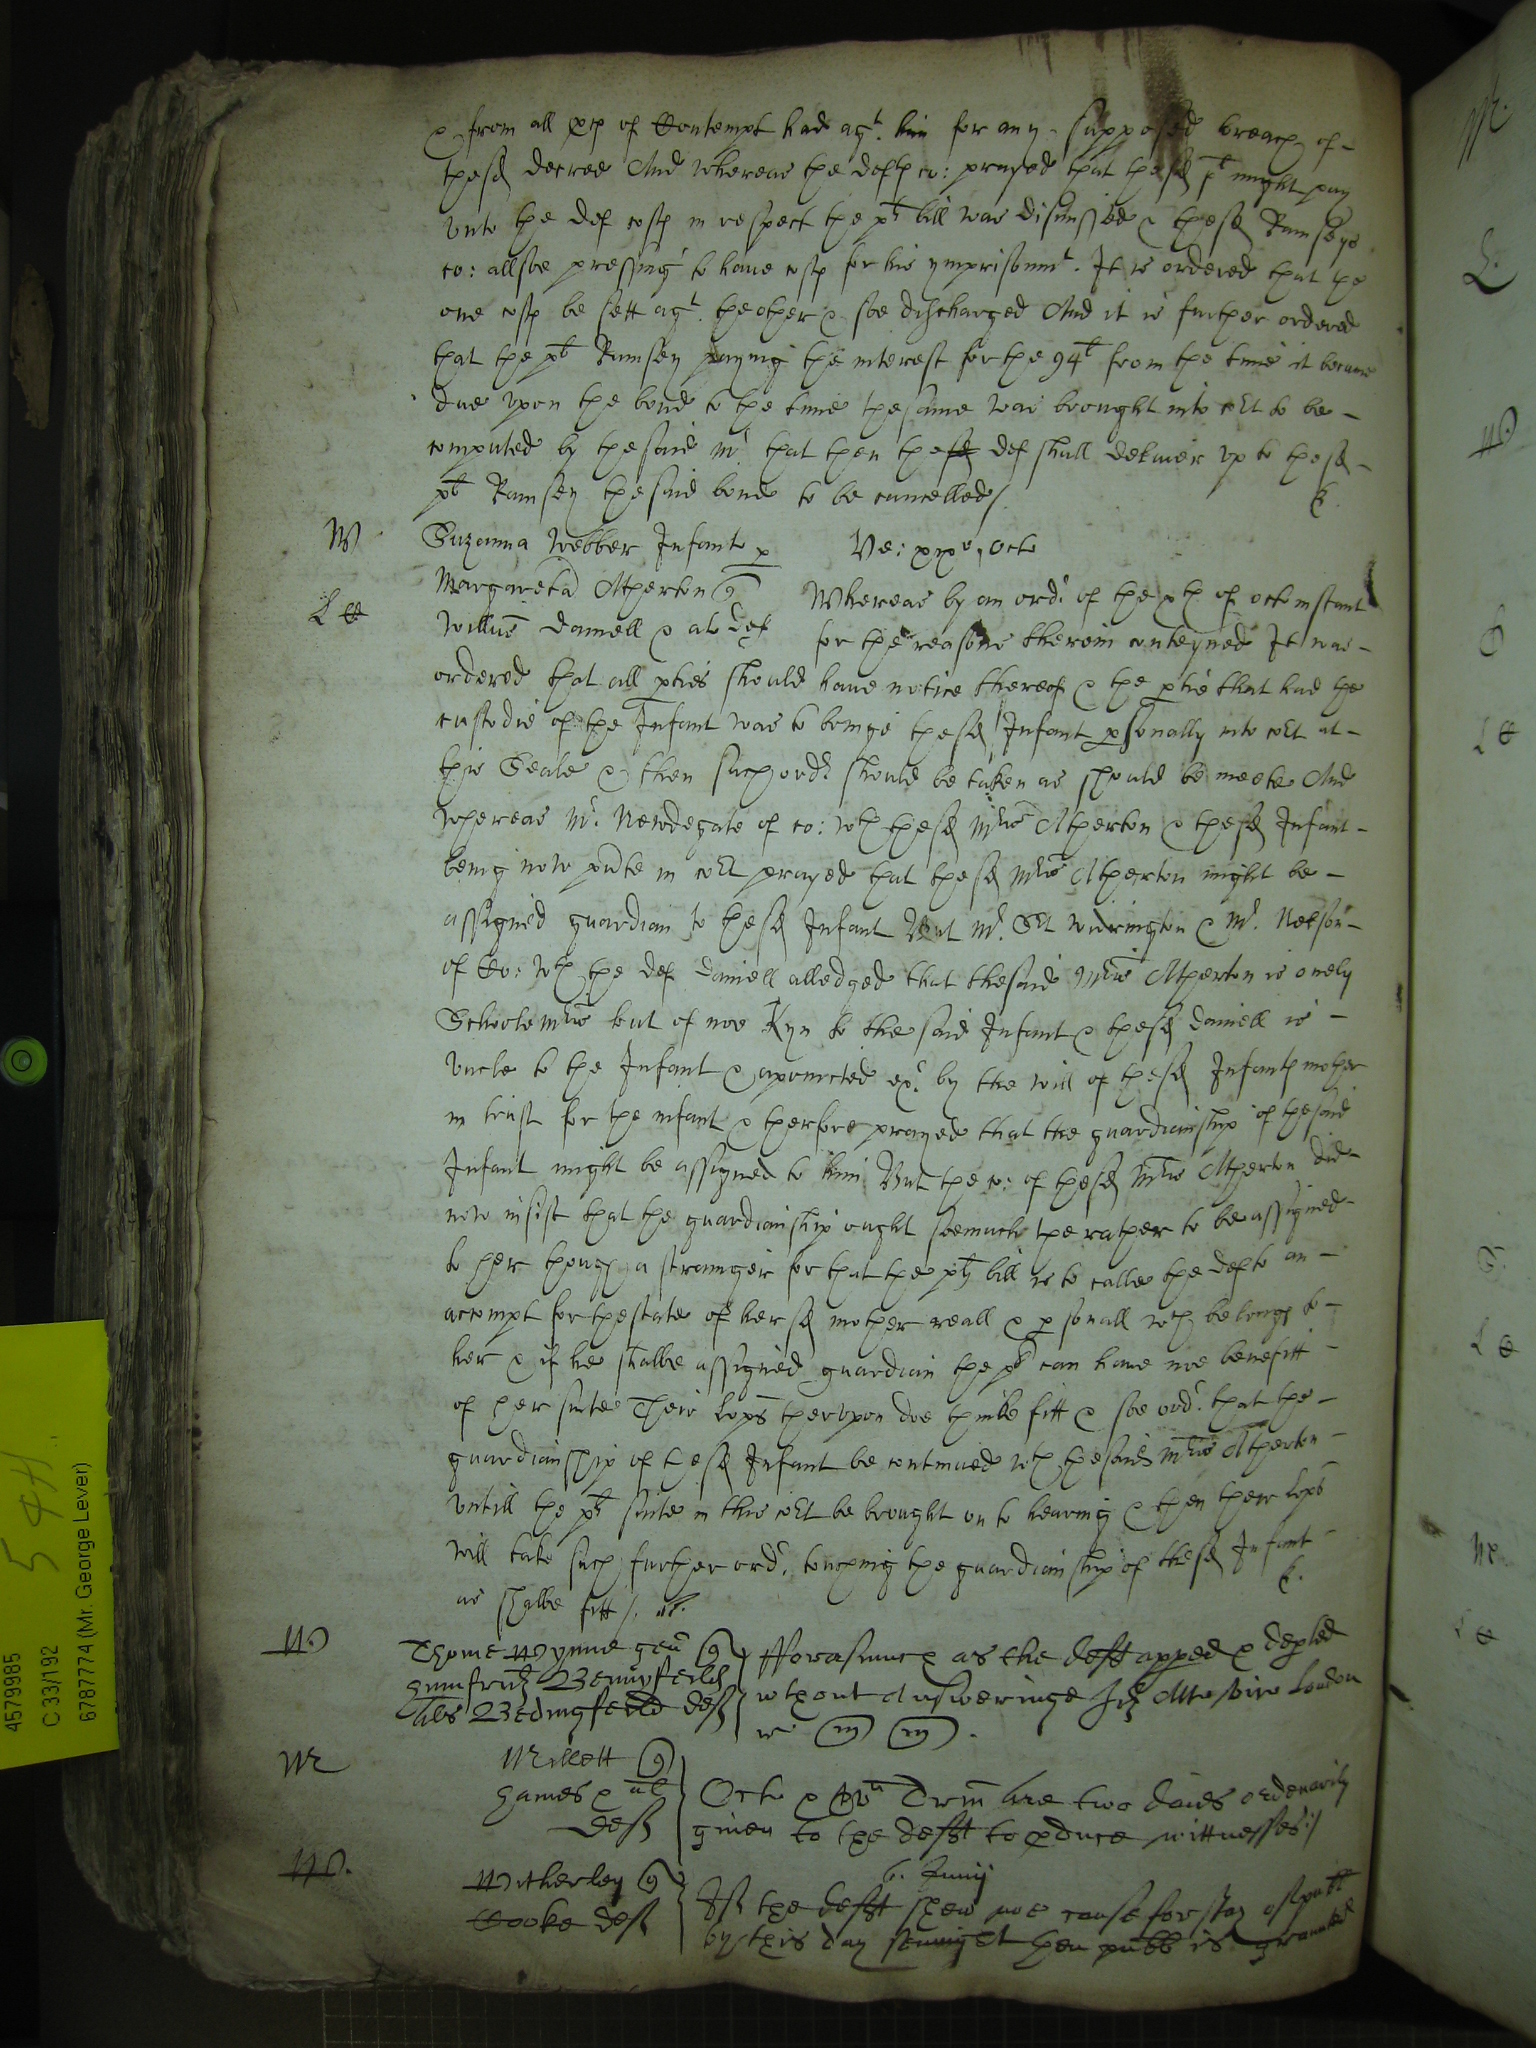 & from all pces of Contempt had agt. him for any supposed breach of
thesd decree And whereas the defts co: prayed that thesd plt might pay
unto the def costs in respect the plts bill was dismissed & thesd Ramseys
co: allsoe pressing to have costs for his ymprisonmt. It is ordered that the
one costs be sett agt. theother & soe discharged And it is further ordered
that the plt Ramsey paying the interest for the 94l from the time it became
due upon the bond to the time thesame was brought into cort to be
computed by thesaid mr that then the def shall deliver up to thesd
plt Ramsey thesaid bond to be cancelled/
W Suzanna Webber Infants p Ve: xixo. Octo
Margareta Atherton q
Whereas by an ordr of the xth of octo instant
L C Willus Daniell & als def
for the reasons therein conteyned It was
ordered that all pties should have notice thereof & the ptie that had the
custodie of the Infant was to bringe thesd Infant psonally into cort at
this Seale & then such ordr should be taken as should be meete And
whereas Mr. Newdegate of co: wth thesd Mris Atherton & thesd Infant
being now psnte in cort prayed that thesd Mris Atherton might be
assigned guardian to thesd Infant But Mr. Srt Widrington & Mr. Nelson
of Co: wth the def Daniell alledged that thesaid Mris Atherton is onely
Schoole mris but of noe Kyn to the said Infant & thesd Daniell is
uncle to the Infant & apointed exr by the will of thesd Infants mother
in trust for the infant & therfore prayed that the guardianship of thesaid
Infant might be assigned to him But the co: of thesd Mris Atherton did
now insist that the guardianship ought soemuch the rather to be assigned
to her though a straunger for that the plts bill is to calle the def to an
accompt for thestate of her sd mother reall & psonall wch belongs to
her & if he shalbe assigned guardian the plt can have noe benefitt
of her suite Their lopps therupon doe thinke fitt & soe ordr. that the
guardianship of thesd Infant be continued wth thesaid Mris Atherton
untill the plts suite in this cort be brought on to hearing & then their lopps
will take such further ordr. touching the guardianship of thesd Infant
as shalbe fitt/.
W Thome Wynne gen q
Forasmuch as the deft apped & depted
Humfrid Bedingfeild
als Bedingfeild def
wthout answeringe Iꝛ Attach vic London
Mr Millett q
James & al
def
Octo & Trin are two daies ordenarily
given to the defft to pduce wittnesses/
W. Witherley q
Cooke def
6. Junij
If the defft shew noe cause for stay of publ
by this day sennight then publ is graunted
4579985
C 33/192
6787774 (Mr. George Lever)
544